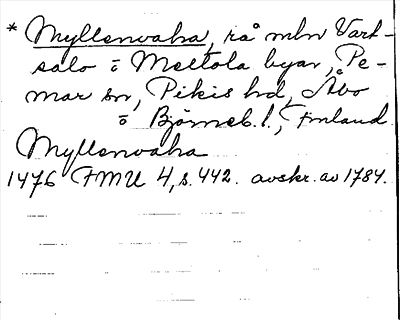 * Myllenvaha, rå mln Vart-
salo o Meltola byar, Pe-
mar sn, Pikis hd, Åbo
o Björneb. l., Finland.
Myllenvaha
1476 FMU 4, s. 442. avskr. av 1784.